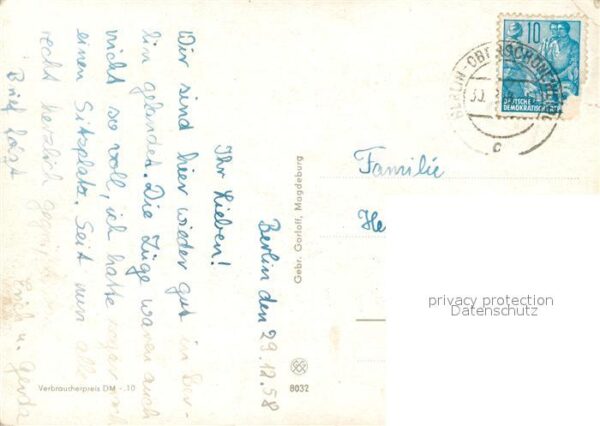 Berlin den 29.12.58
Ihr Lieben!
Wir sind hier wieder gut in Ber-
lin gelandet. Die Züge waren auch
nicht so voll, ich hatte sogar noch
einen Sitzplatz. Seit nun alle
recht herzlich gegrüßt von
Brief folgt
Erich u. Gerda
Gebr. Garloff, Magdeburg
Verbraucherpreis DM -.10
8032
10
DEUTSCHE
DEMOKRATISCHE
BERLIN-OBERSCHÖNEWEIDE
c
Familie
He
privacy protection
Datenschutz